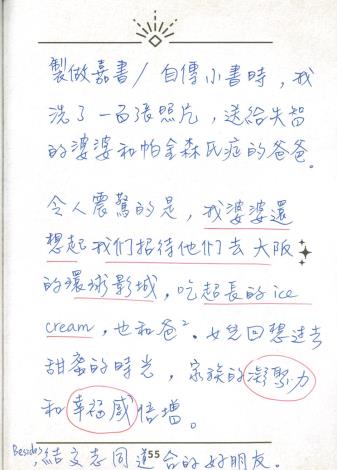 製做嘉書/自傳小書時，我
洗了一百張照片，送給失智
的婆婆和帕金森氏症的爸爸。
令人震驚的是，我婆婆還
想起我们招待他們去大阪
的環球影城，吃超長的ice
cream，也和爸²。女兒回想过去
甜蜜的時光，家族的凝聚力
和幸福感倍增。
Besides,結交志同道合的好朋友。
55